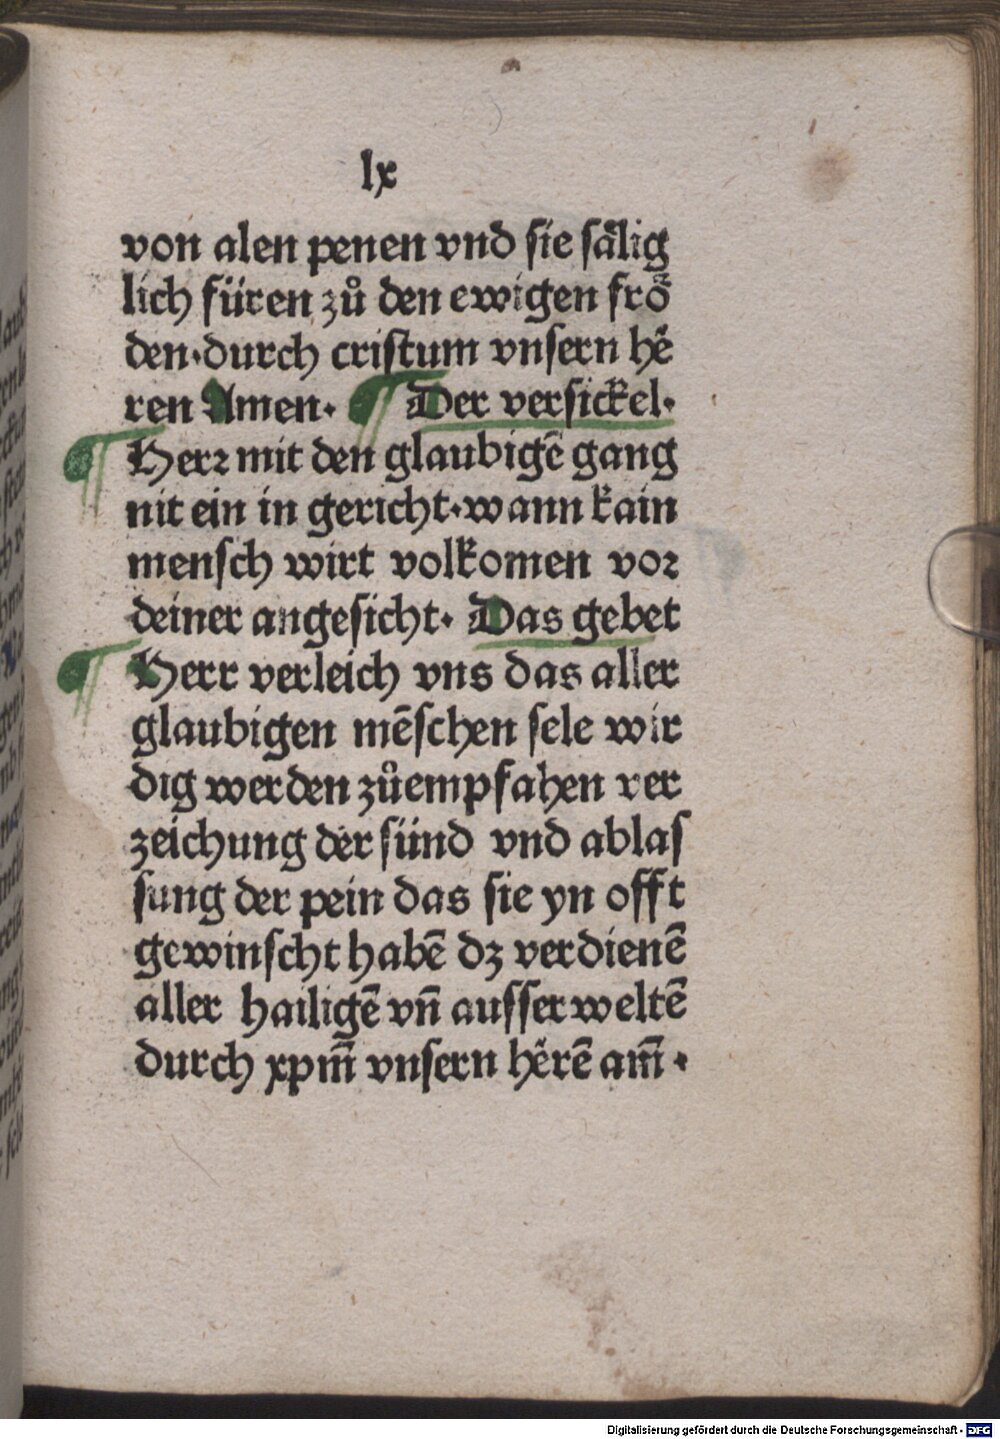 lx
von alen penen vnd sie sälig
lich füren zů den ewigen frö
den·durch cristum vnsern hē
ren Amen· ¶ Der versickel·
¶ Herr mit den glaubigē gang
nit ein in gericht·wann kain
mensch wirt volkomen vor
deiner angesicht· Das gebet
¶ Herr verleich vns das aller
glaubigen mēschen sele wir
dig werden zůempfahen ver
zeichung der sünd vnd ablas
sung der pein das sie yn offt
gewinscht habē dz verdienē
aller hailigē vn̄ ausserweltē
durch xpm̄ vnsern hērē am̄·
Digitalisierung gefördert durch die Deutsche Forschungsgemeinschaft - DFG